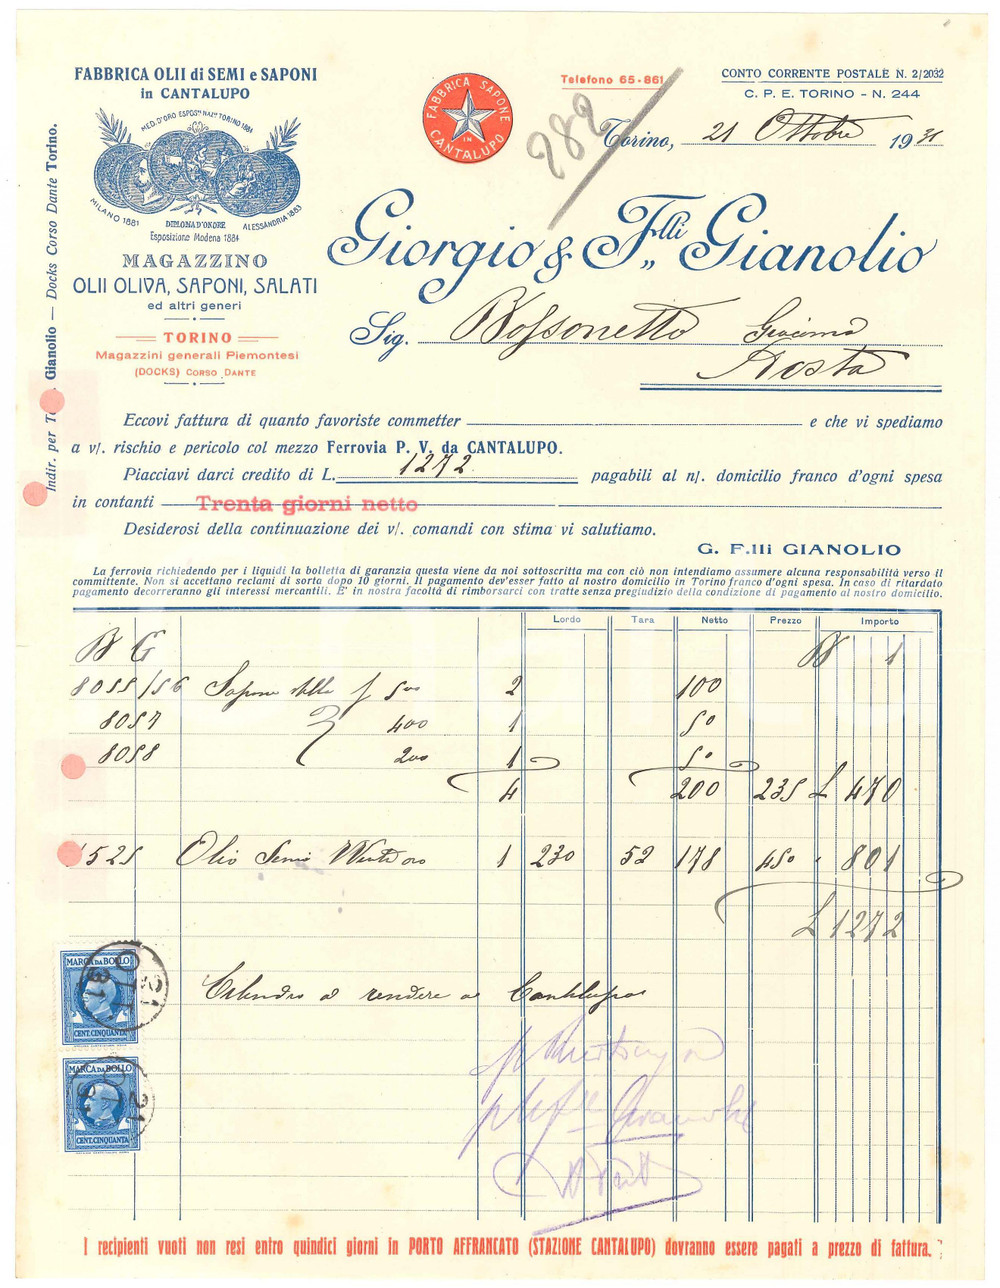 FABBRICA OLII di SEMI e SAPONI
in CANTALUPO
MED. D'ORO ESPOS.NE NAZ.LE TORINO 1884
MILANO 1881
DIPLOMA D'ONORE
ALESSANDRIA 1883
Esposizione Modena 1884
MAGAZZINO
OLII OLIVA, SAPONI, SALATI
ed altri generi
TORINO
Magazzini generali Piemontesi
(DOCKS) CORSO DANTE
FABBRICA SAPONE
IN
CANTALUPO
Telefono 65-861
282
CONTO CORRENTE POSTALE N. 2/2032
C. P. E. TORINO - N. 244
Torino, 21 Ottobre 1931
Giorgio & F.lli Gianolio
Sig. Bossonetto Giacomo
Aosta
Indir. per Gianolio — Docks Corso Dante Torino.
Eccovi fattura di quanto favoriste commetter e che vi spediamo
a v/. rischio e pericolo col mezzo Ferrovia P. V. da CANTALUPO.
Piacciavi darci credito di L. 1272 pagabili al n/. domicilio franco d'ogni spesa
in contanti Trenta giorni netto
Desiderosi della continuazione dei v/. comandi con stima vi salutiamo.
G. F.lli GIANOLIO
La ferrovia richiedendo per i liquidi la bolletta di garanzia questa viene da noi sottoscritta ma con ciò non intendiamo assumere alcuna responsabilità verso il
committente. Non si accettano reclami di sorta dopo 10 giorni. Il pagamento dev'esser fatto al nostro domicilio in Torino franco d'ogni spesa. In caso di ritardato
pagamento decorreranno gli interessi mercantili. E' in nostra facoltà di rimborsarci con tratte senza pregiudizio della condizione di pagamento al nostro domicilio.
Lordo Tara Netto Prezzo Importo
B G 1
8055/56 Sapone stella 500 2 100
8057 400 1 50
8058 200 1 50
4 200 235 £ 470
1525 Olio Semi 1 230 52 178 450 801
£ 1272
MARCA DA BOLLO
CENT. CINQUANTA
21 OTT 31
MARCA DA BOLLO
CENT. CINQUANTA
Cilindro a rendere a Cantalupo
I recipienti vuoti non resi entro quindici giorni in PORTO AFFRANCATO (STAZIONE CANTALUPO) dovranno essere pagati a prezzo di fattura.